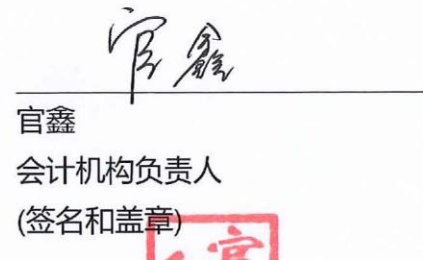 官鑫
官鑫
会计机构负责人
(签名和盖章)
官